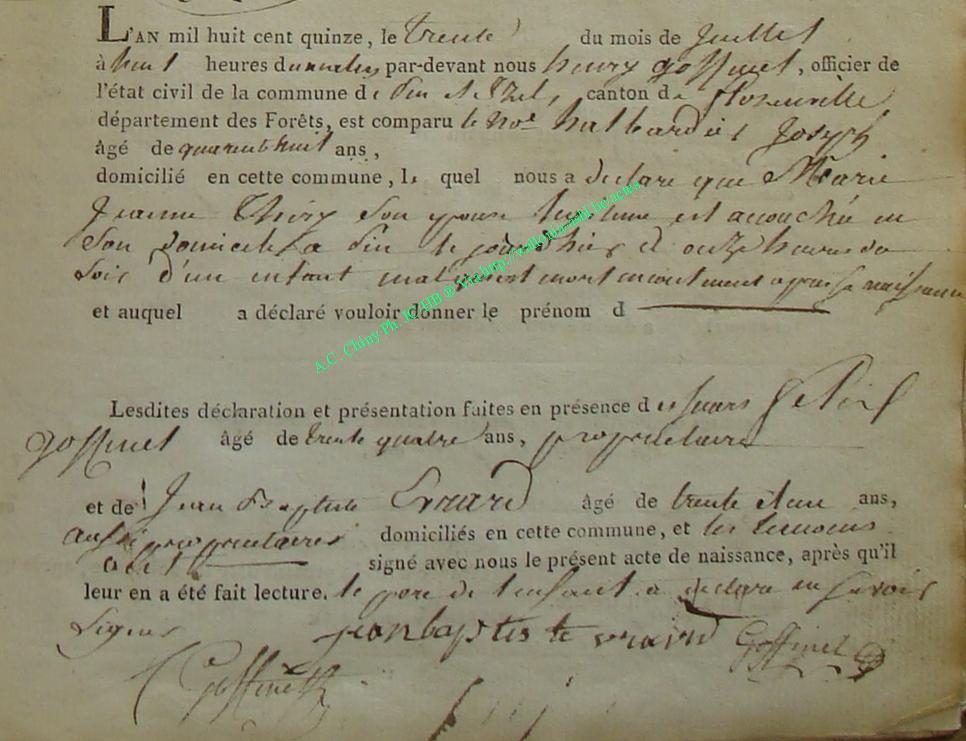 L'AN mil huit cent quinze, le trente du mois de Juillet
à huit heures du matin par-devant nous henry goffinet, officier de
l'état civil de la commune de pin et Izel, canton de florenville
département des Forêts, est comparu le nommé halbardier Joseph
âgé de quarente huit ans,
domicilié en cette commune, le quel nous a declare que Marie
Jeanne Thiry son epouse est acouchée en
son domicile a pin le jour d'hier à onze heures du
soir d'un enfant mort apres sa naissance
et auquel a déclaré vouloir donner le prénom d
Lesdites déclaration et présentation faites en présence des
goffinet âgé de trente quatre ans, proprietaire
et de Jean Baptiste Evrard âgé de trente et un ans,
aussi proprietaires domiciliés en cette commune, et les temoins
ont signé avec nous le présent acte de naissance, après qu'il
leur en a été fait lecture. le pere de l'enfant a declare ne savoir
signer jean baptiste evrard Goffinet
Goffinet
A.C. Chiny Ph. KCHB @ Via http://